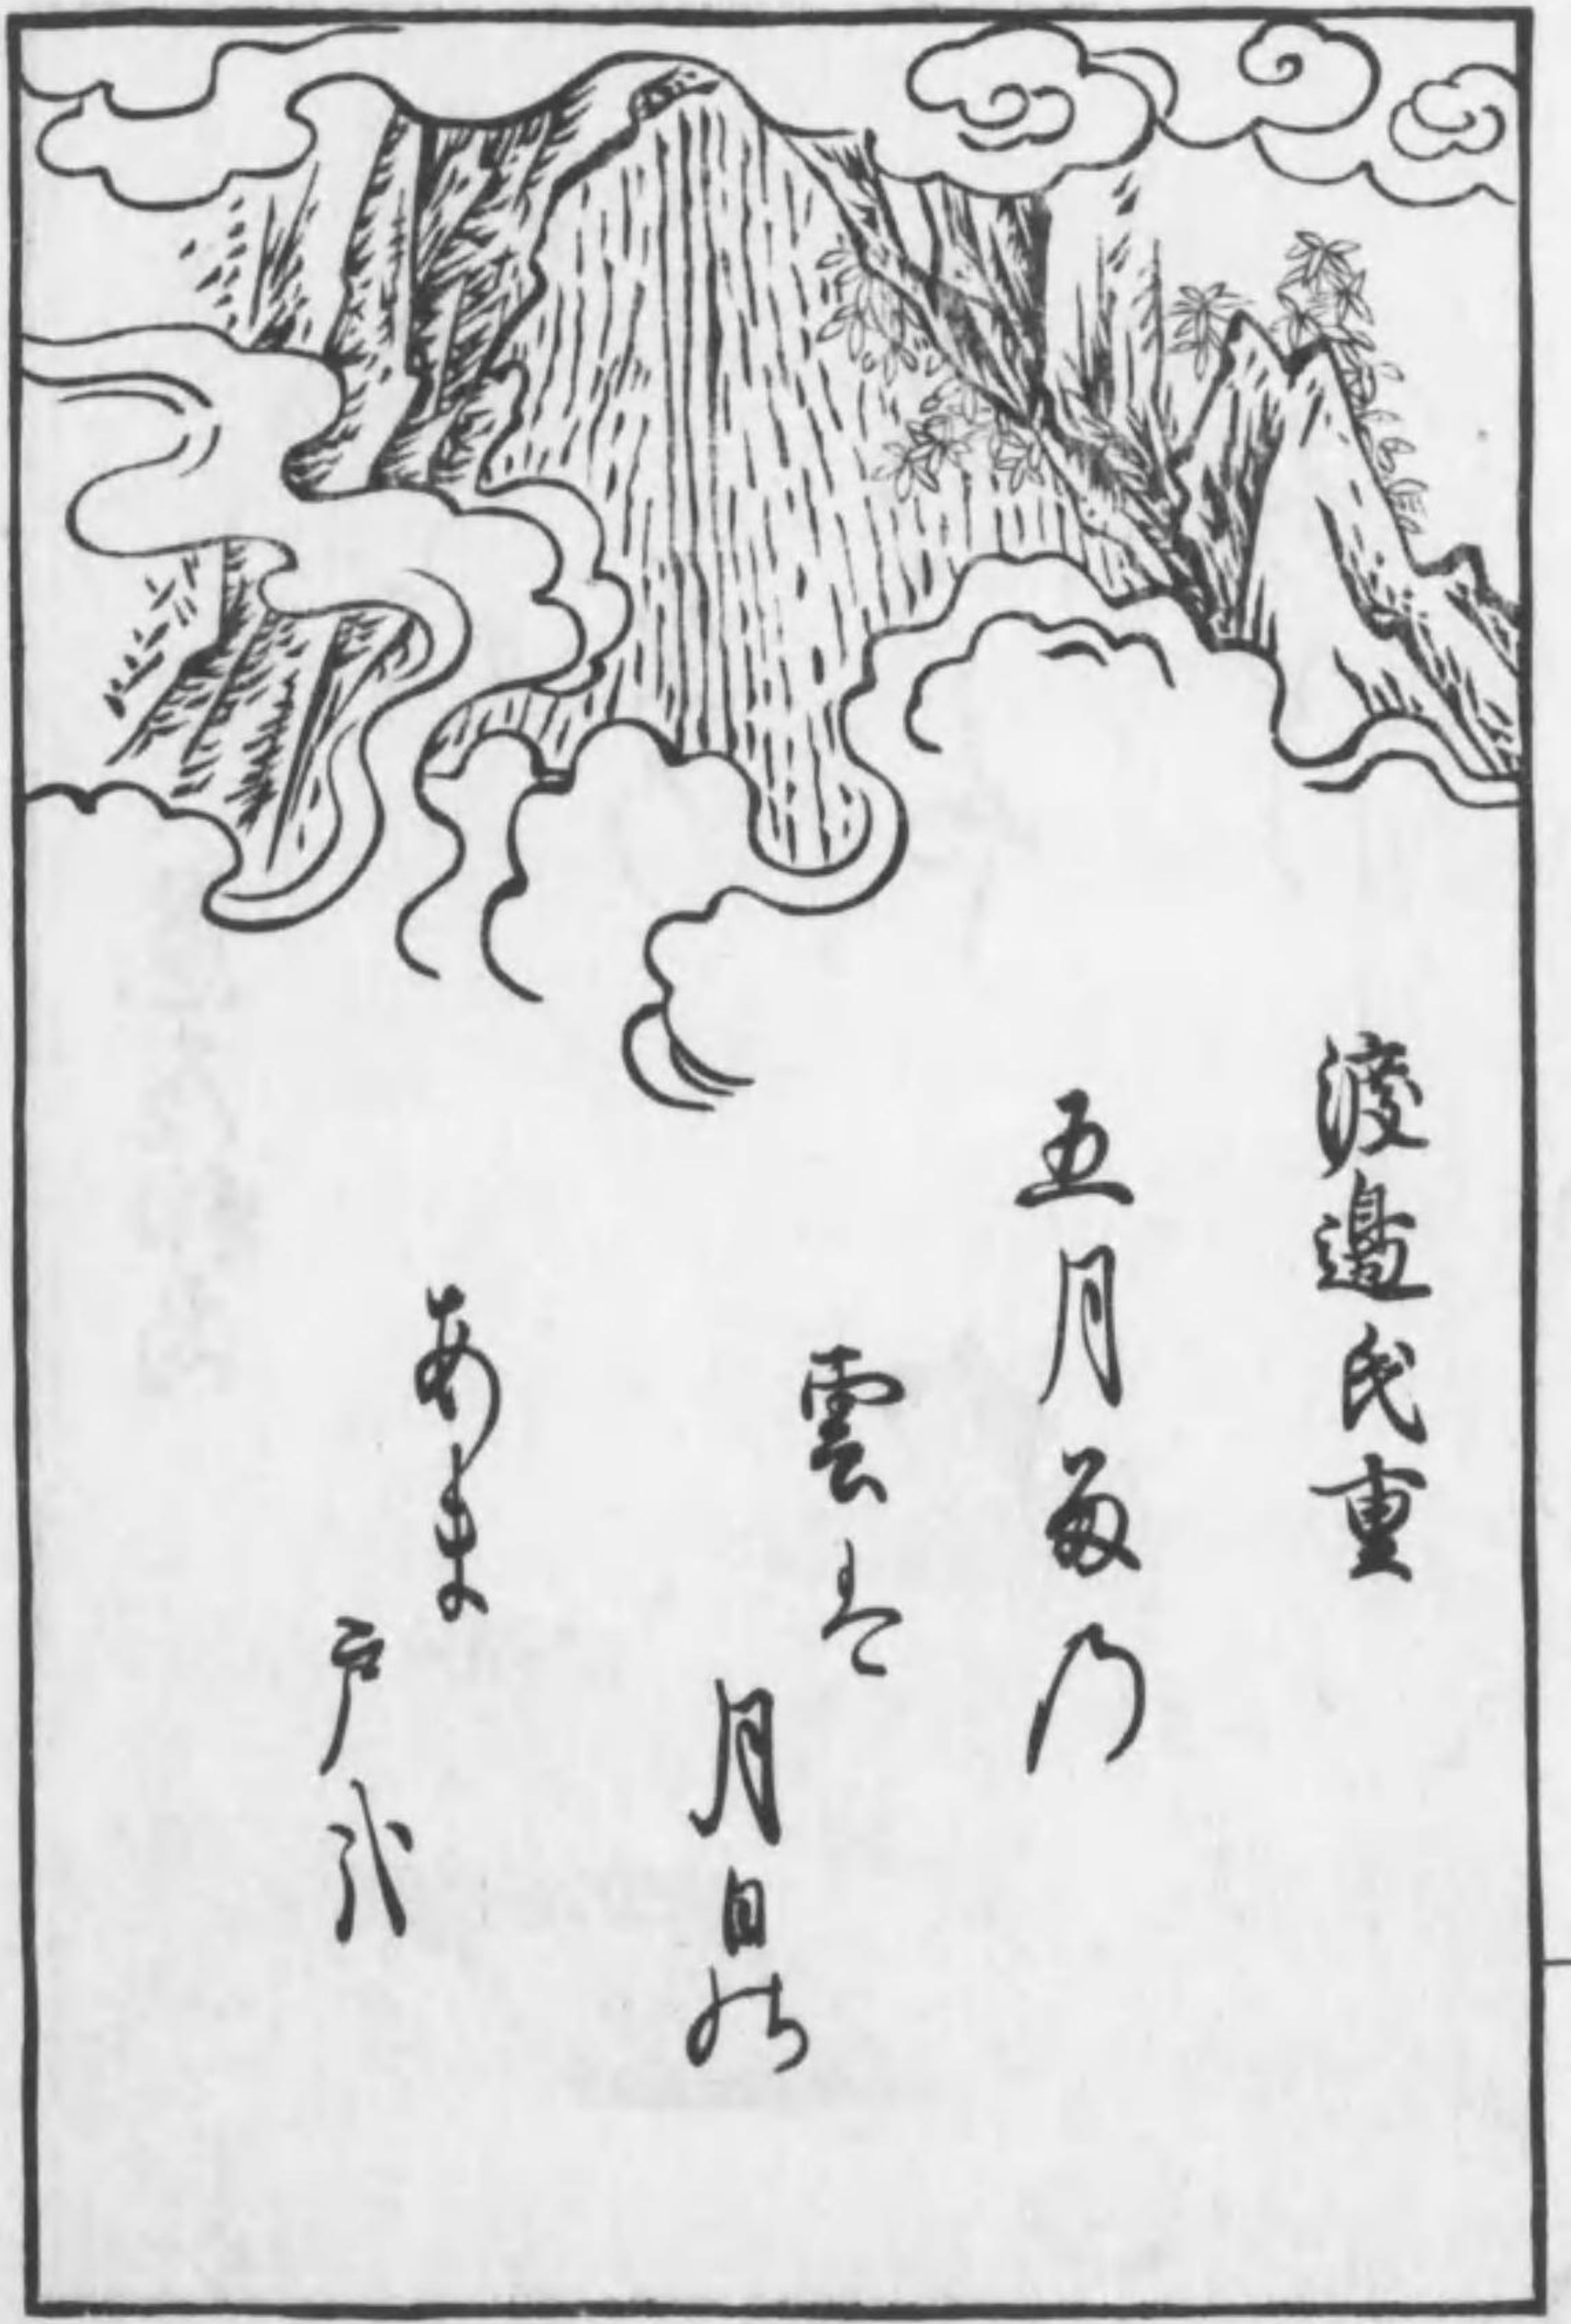 渡邉氏重
五月雨乃
雲は
月日能
あま
戸哉